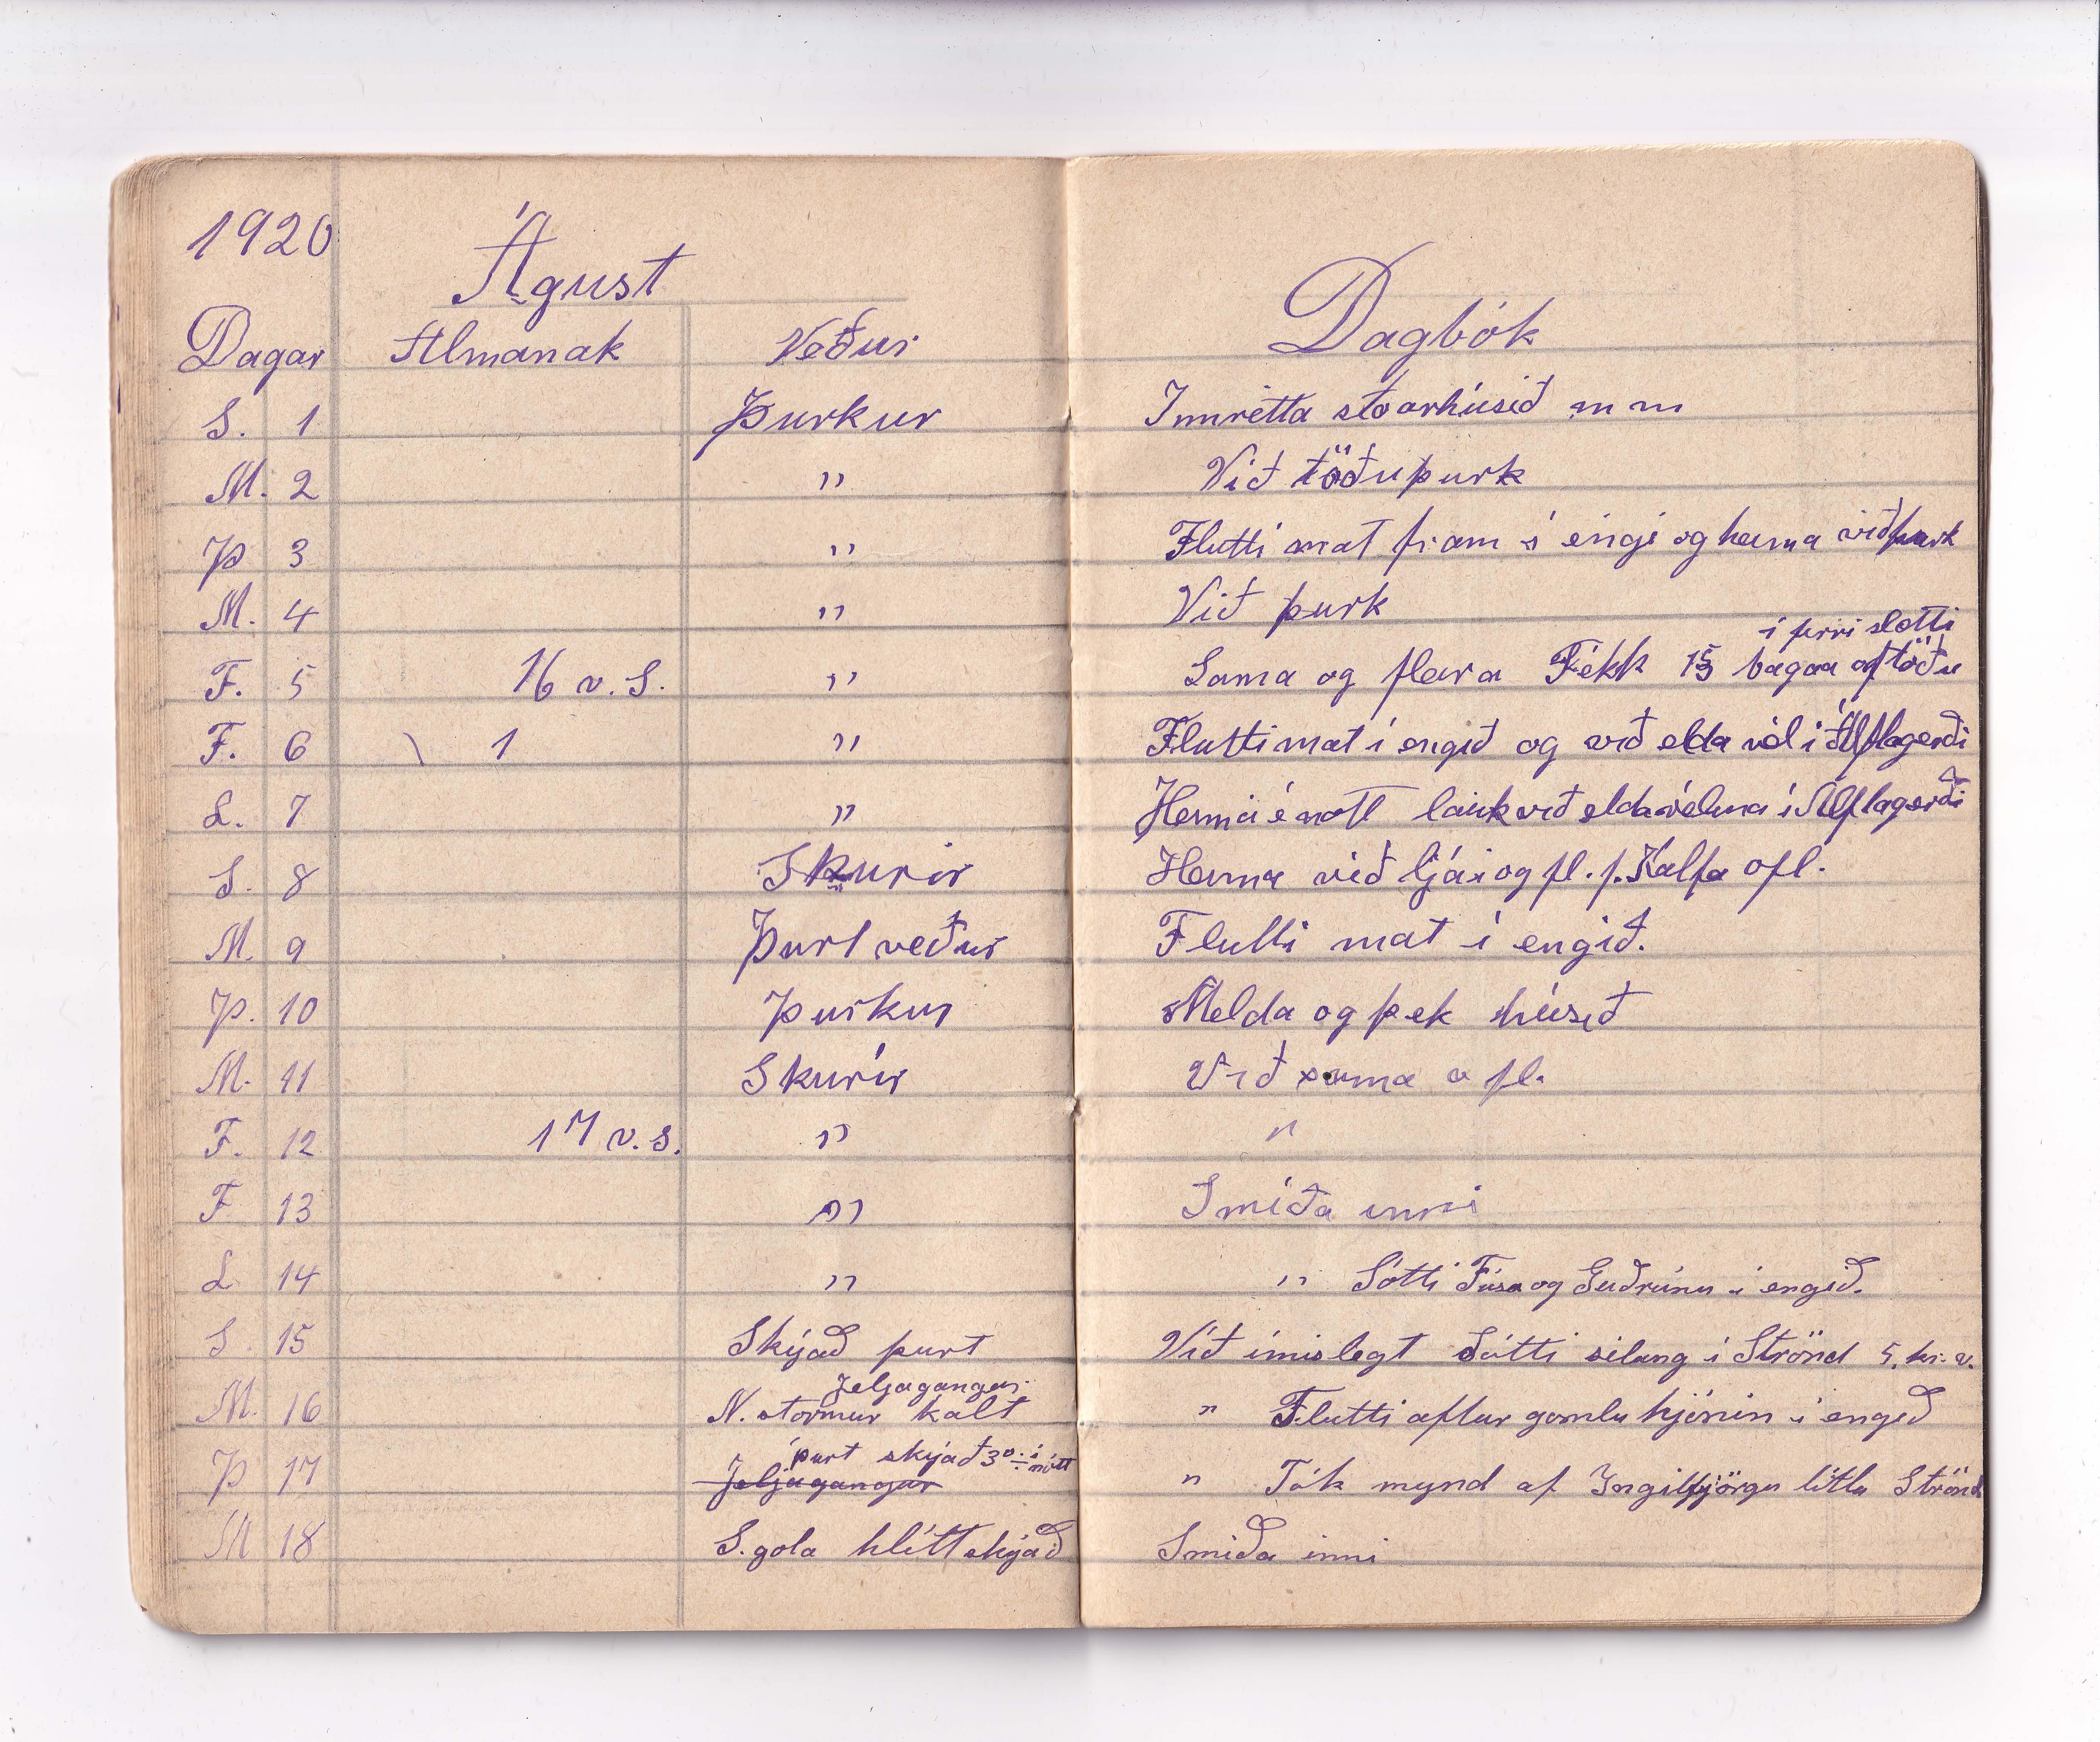 1920
Águst
Dagar Almanak Veður Dagbók
S. 1 Þurkur Innrétta stoarhúsið m m
M. 2 " Við töðuþurk
Þ 3 " Flutti mat fram í engi og heima við þurk
M. 4 " Við þurk
í þerri slotti
F. 5 16 v. S. " Sama og fleira Fékk 15 bagaa af töðu
F. 6 \ 1 " Flutti mat í engið og við elda vél í Álftagerði
L. 7 " Heima í nótt lauk við eldavélina í Álftagerði
S. 8 Skurir Heima við ljái og fl. f. Kalfa ofl.
M. 9 Þurt veður Flutti mat í engið.
Þ. 10 Þurkur Melda og þek húsið
M. 11 Skurir Við sama o fl.
F. 12 17 v. s. " "
F 13 " Smíða inni
L 14 " " Sótti Fúsa og Guðrúnu í engið.
S. 15 Skýað þurt Við ímislegt Sótti silung í Strönd 5. kr. v.
Jeljagangur
M. 16 N. stormur kalt " Flutti aftur gomlu hjónin í engið
þurt skýað 3° ÷ í nótt
Þ 17 Jeljagangur " Tók mynd af Ingibjörgu litlu Strönd
M 18 S. gola hlítt skýað Smiða inni